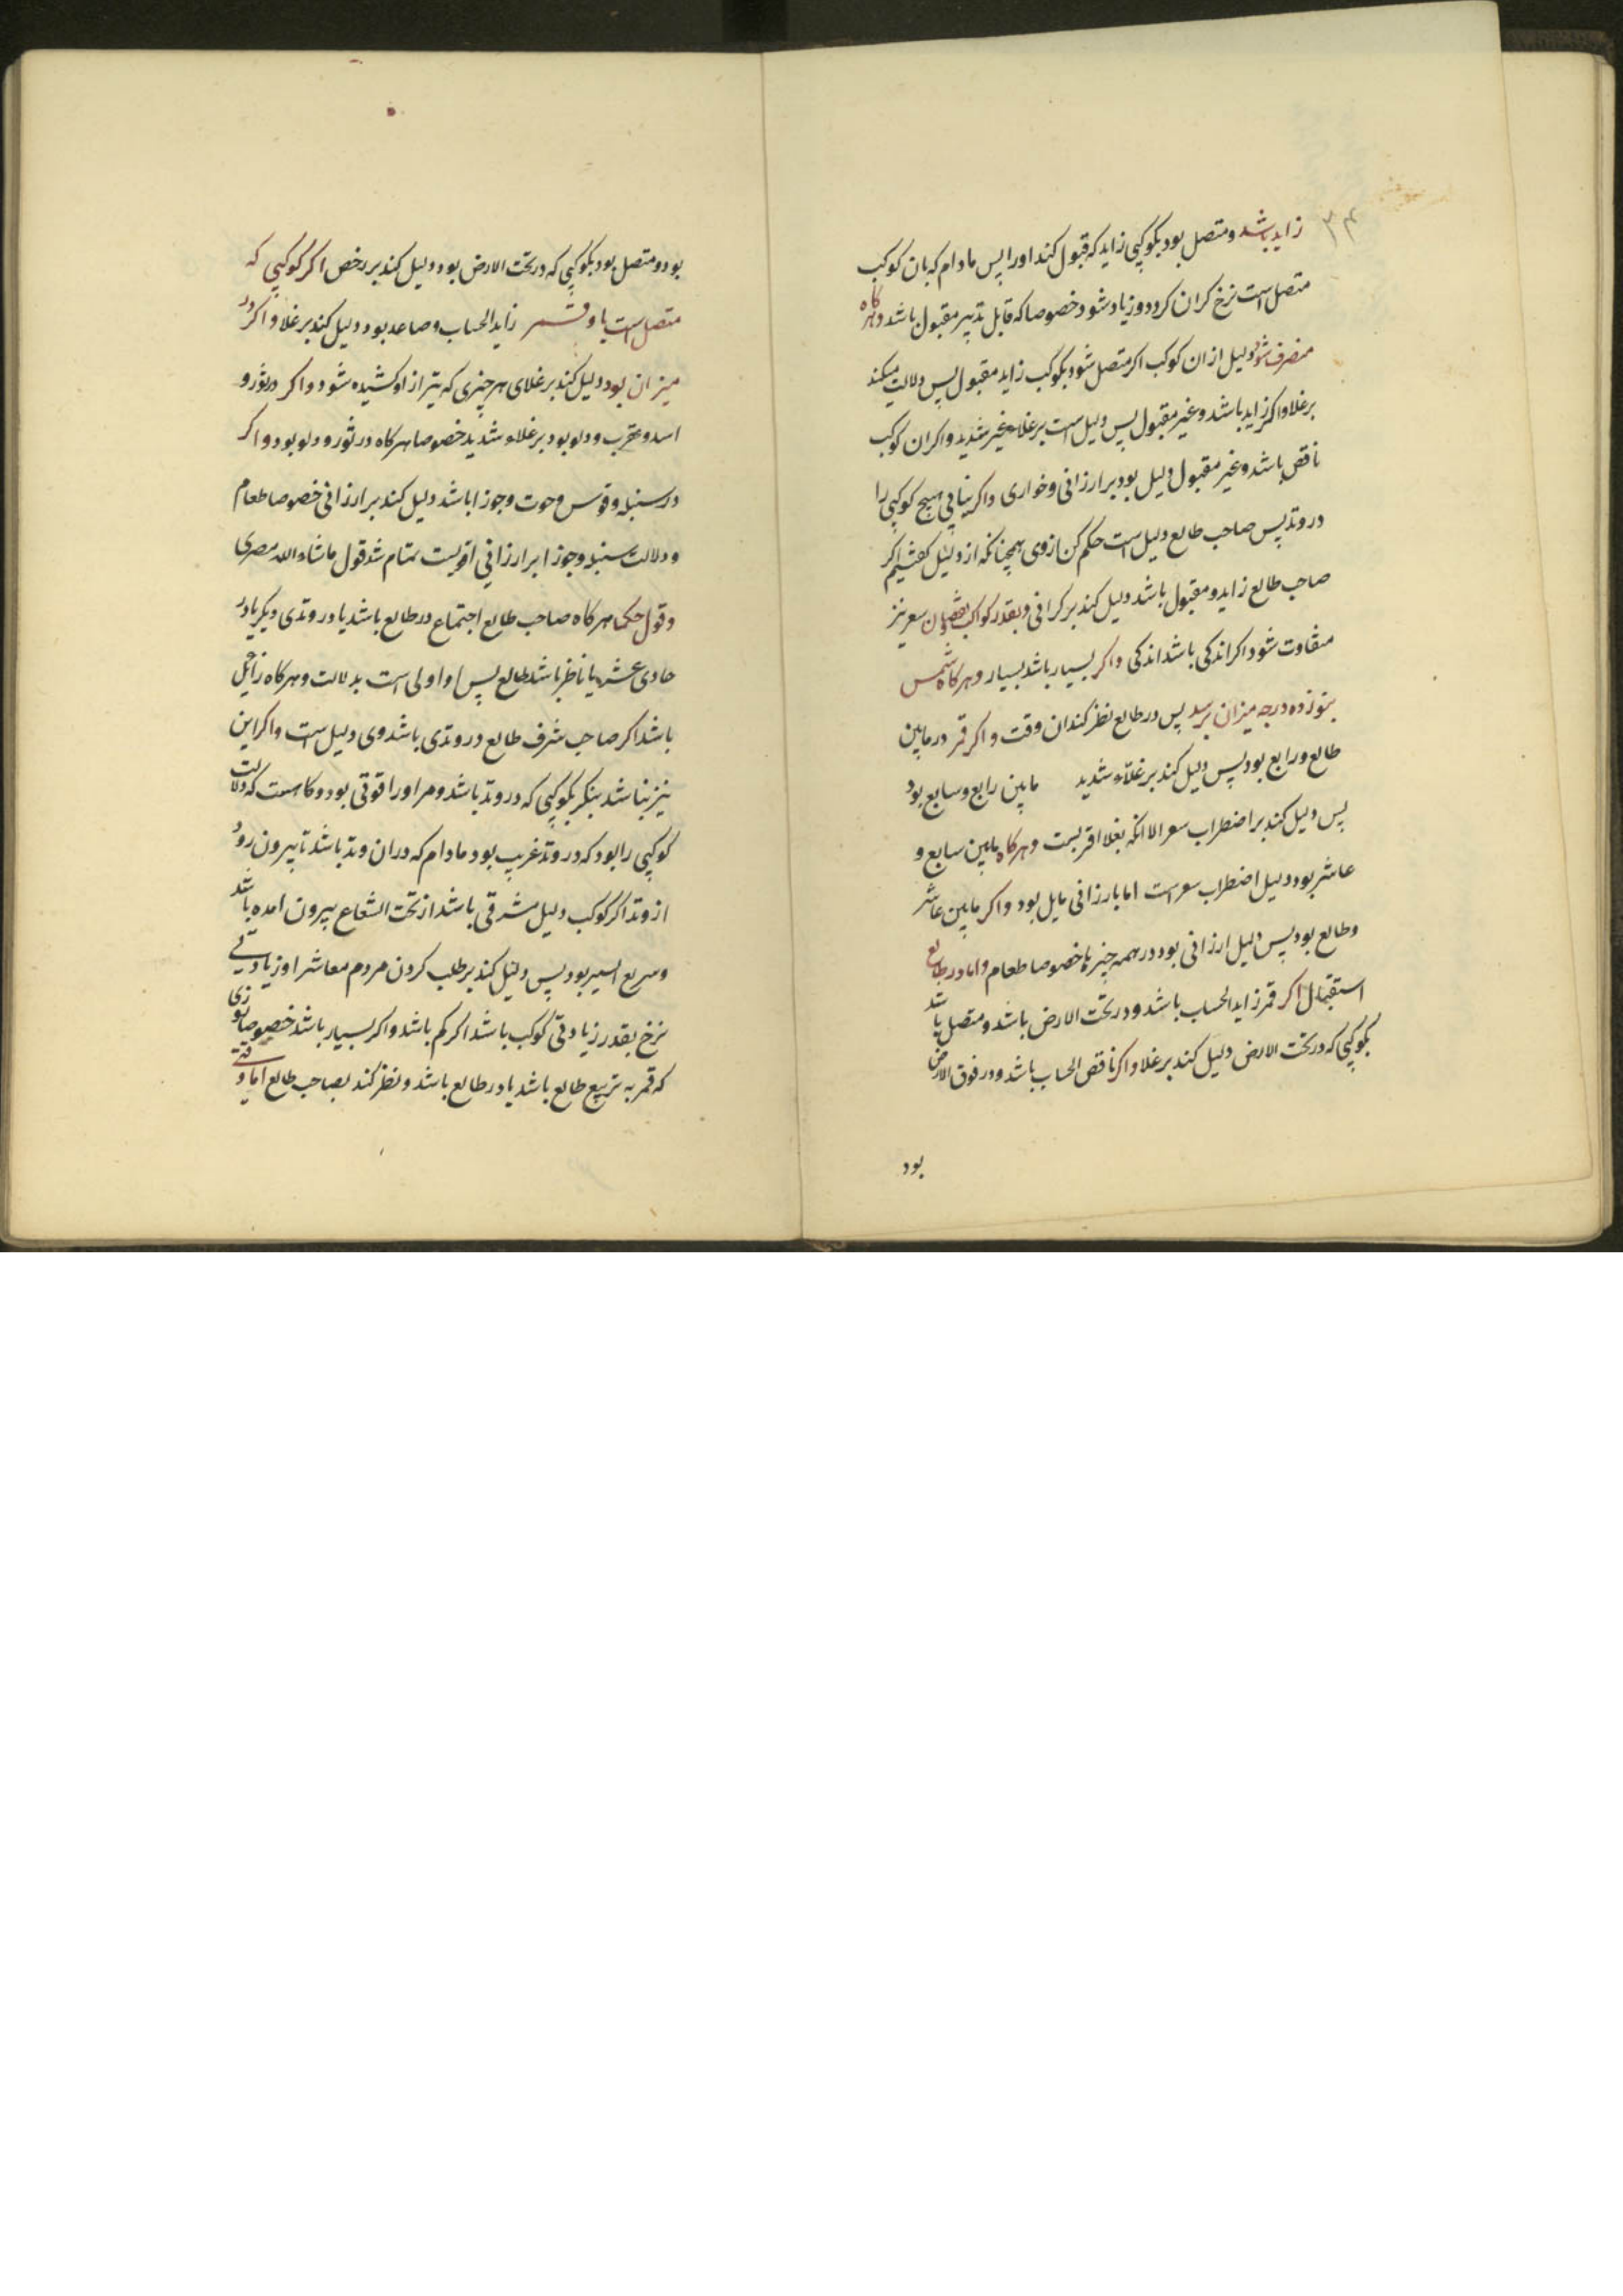 ۳۴
زاید باشد و متصل بود بکوکبی زاید که قبول کند اورا پس مادام که بان کوکب
متصل است نرخ کران کردد و زیاد شود خصوصا که قابل تدبیر مقبول باشد و هرکاه
منصرف شود دلیل از ان کوکب اکر متصل شود بکوکب زاید مقبول پس دلالت میکند
برغلا و اکر زاید باشد و غیر مقبول پس دلیل است برغلاء غیر شدید و اکر ان کوکب
ناقص باشد و غیر مقبول دلیل بود بر ارزانی و خواری و اکر نیابی هیچ کوکبی را
در وتد پس صاحب طالع دلیل است حکم کن ازوی همچنانکه از دلیل کفتیم اکر
صاحب طالع زاید و مقبول باشد دلیل کند بر کرانی و بقدر کواکب نقصان سعر نیز
متفاوت شود اکر اندکی باشد اندکی و اکر بسیار باشد بسیار و هرکاه شمس
بنوزده درجه میزان برسد پس در طالع نظر کند ان وقت و اکر قمر در مابین
طالع و رابع بود پس دلیل کند بر غلاء شدید مابین رابع و سابع بود
پس دلیل کند بر اضطراب سعر الا انکه بغلا اقربست و هرکاه مابین سابع و
عاشر بود دلیل اضطراب سعر است اما بارزانی مایل بود و اکر مابین عاشر
وطالع بود پس دلیل ارزانی بود در همه چیزها خصوصا طعام و اما در طالع
استقبال اکر قمر زاید الحساب باشد و در تحت الارض باشد و متصل باشد
بکوکبی که در تحت الارض دلیل کند بر غلا و اکر ناقص الحساب باشد و در فوق الارض
بود
بود و متصل بود بکوکبی که در تحت الارض بود دلیل کند بر رخص اکر کوکبی که
متصل است باو قمر زاید الحساب و صاعد بود دلیل کند بر غلا و اکر در
میزان بود دلیل کند بر غلای هر چیزی که بترازو کشیده شود و اکر در ثور و
اسد و عقرب و دلو بود بر غلاء شدید خصوصا هرکاه در ثور و دلو بود و اکر
در سنبله و قوس و حوت و جوزا باشد دلیل کند بر ارزانی خصوصا طعام
و دلالت سنبله و جوزا بر ارزانی اقویست تمام شد قول ماشاء الله مصری
و قول حکما هرکاه صاحب طالع اجتماع در طالع باشد یا در وتدی دیکر یا در
حادی عشر یا ناظر باشد بطالع پس او اولی است بدلالت و هرکاه زایل
باشد اکر صاحب شرف طالع در وتدی باشد وی دلیل است و اکر این
نیز نباشد بنکر بکوکبی که در وتد باشد و مر اورا قوتی بود و کاهست که دلالت
کوکبی را بود که در وتد غریب بود مادام که دران وتد باشد تا بیرون رود
از وتد اکر کوکب دلیل مشرقی باشد از تحت الشعاع بیرون امده باشد
و سریع السیر بود پس دلیل کند بر طلب کردن مردم معاش را و زیادتی
نرخ بقدر زیادتی کوکب باشد اکر کم باشد و اکر بسیار باشد خصوصا
که قمر به تربیع طالع باشد یا در طالع باشد و نظر کند بصاحب طالع اما وقتی